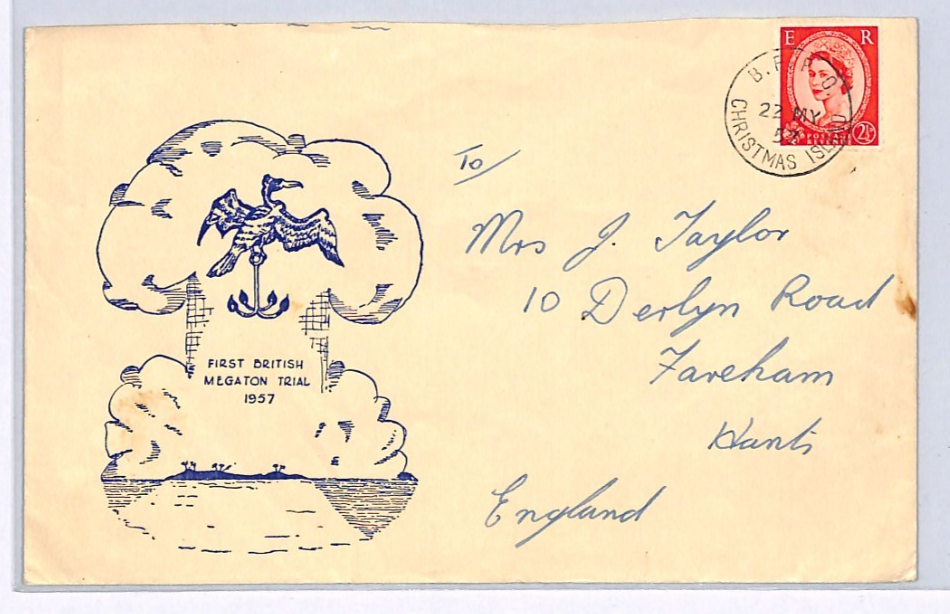 E R
POSTAGE
REVENUE
2½D
B.F.P.O.
22 MY
57
CHRISTMAS ISLAND
To
Mrs J. Taylor
10 Derlyn Road
Fareham
Hants
England
FIRST BRITISH
MEGATON TRIAL
1957